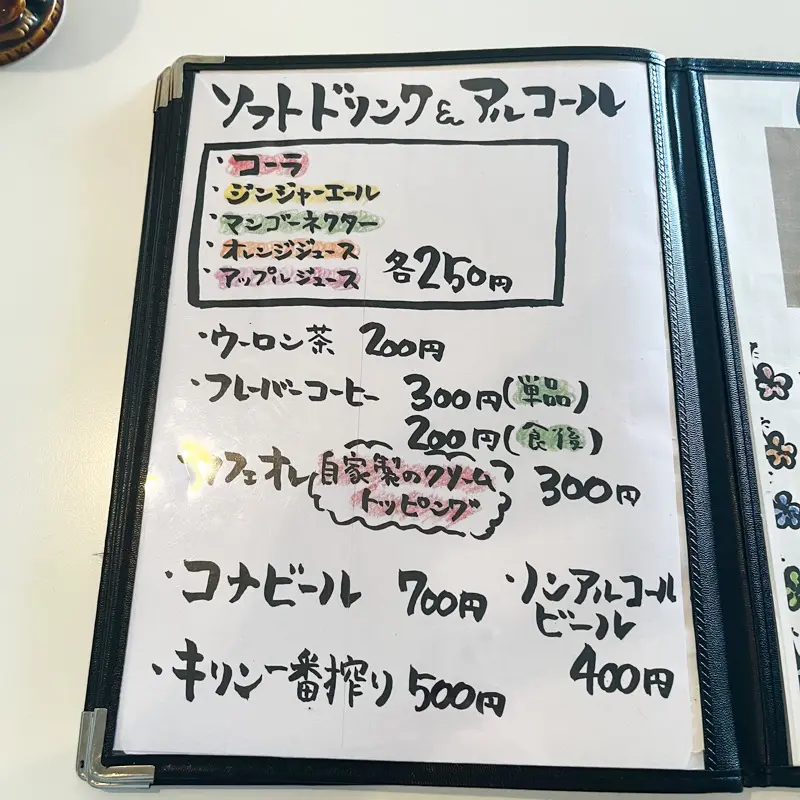 ソフトドリンク&アルコール
・コーラ
・ジンジャーエール
・マンゴーネクター
・オレンジジュース
・アップルジュース
各250円
・ウーロン茶 200円
・フレーバーコーヒー 300円(単品)
200円(食後)
カフェオレ 自家製のクリーム
トッピング
300円
・コナビール 700円
・ノンアルコール
ビール
400円
・キリン一番搾り 500円